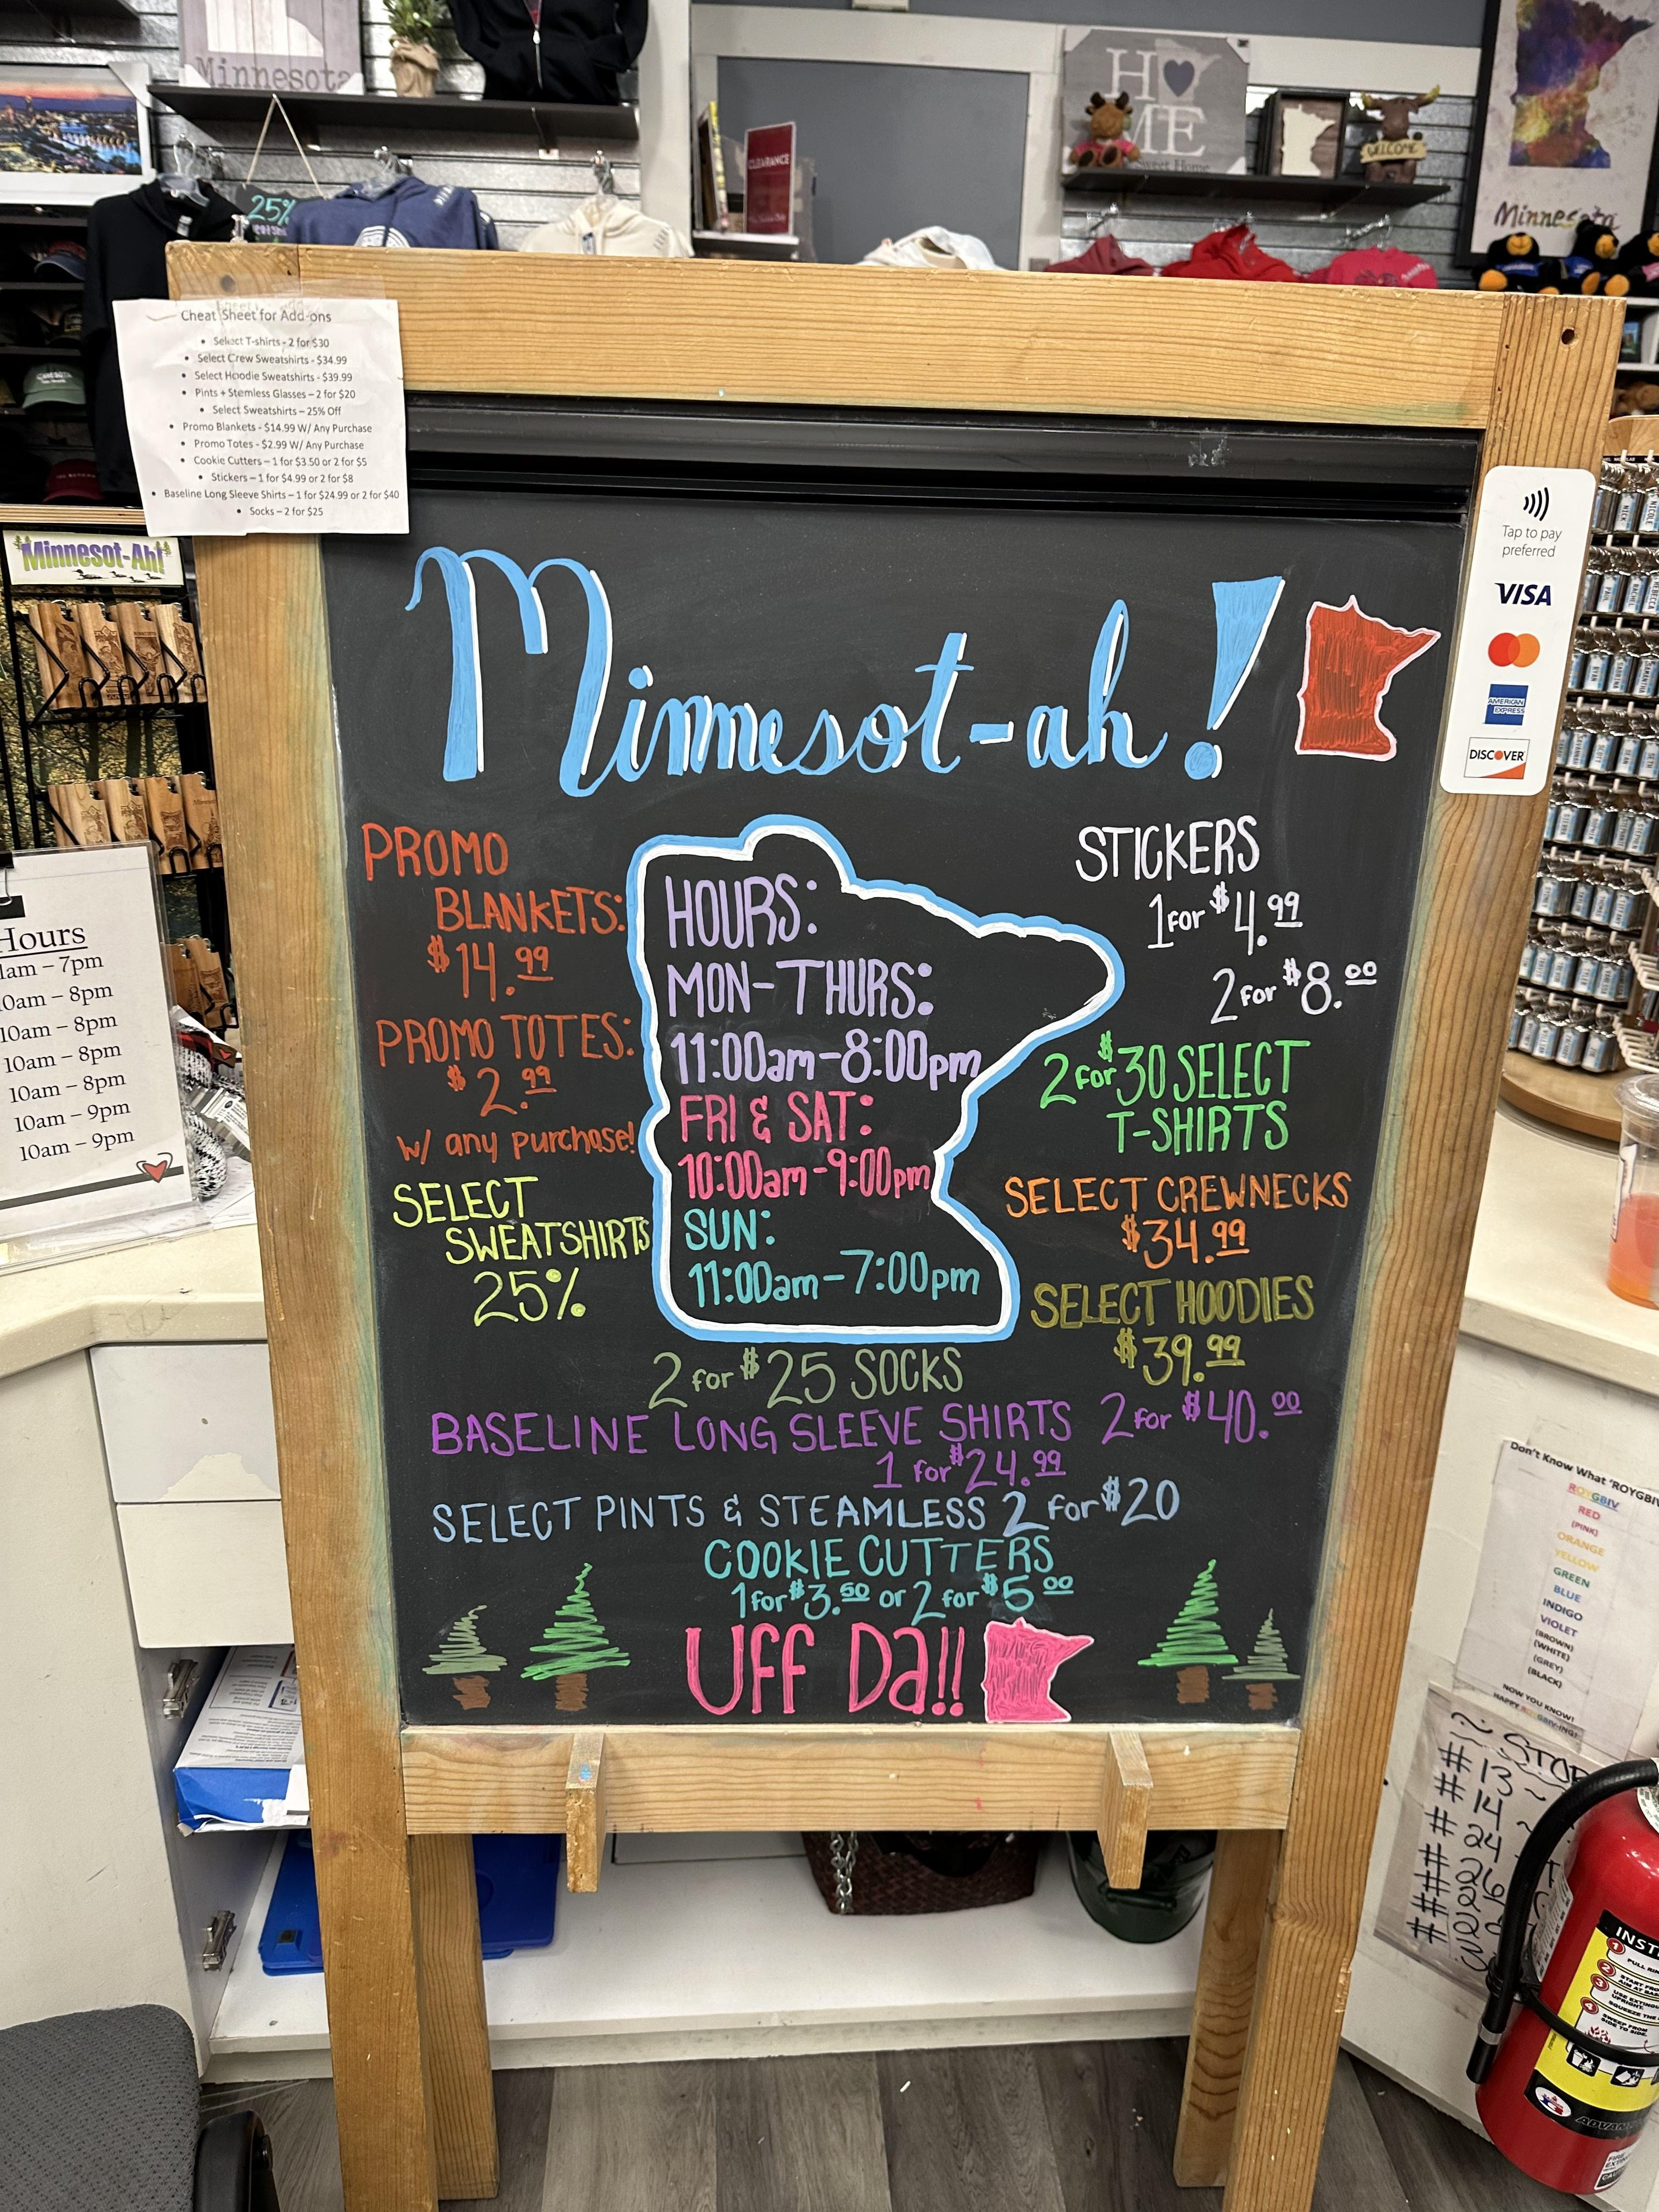 Minnesota
25%
CLEARANCE
HOME
Sweet Home
WELCOME
Minnesota
Cheat Sheet for Add-ons
• Select T-shirts - 2 for $30
• Select Crew Sweatshirts - $34.99
• Select Hoodie Sweatshirts - $39.99
• Pints + Stemless Glasses – 2 for $20
• Select Sweatshirts – 25% Off
• Promo Blankets - $14.99 W/ Any Purchase
• Promo Totes - $2.99 W/ Any Purchase
• Cookie Cutters – 1 for $3.50 or 2 for $5
• Stickers – 1 for $4.99 or 2 for $8
• Baseline Long Sleeve Shirts – 1 for $24.99 or 2 for $40
• Socks – 2 for $25
Minnesot-Ah!
Tap to pay
preferred
VISA
AMERICAN
EXPRESS
DISCOVER
Minnesot-ah!
PROMO
BLANKETS:
$14.99
PROMO TOTES:
$2.99
w/ any purchase!
SELECT
SWEATSHIRTS
25%
HOURS:
MON-THURS:
11:00am-8:00pm
FRI & SAT:
10:00am-9:00pm
SUN:
11:00am-7:00pm
STICKERS
1 for $4.99
2 for $8.00
2 for $30 SELECT
T-SHIRTS
SELECT CREWNECKS
$34.99
SELECT HOODIES
$39.99
2 for $25 SOCKS
BASELINE LONG SLEEVE SHIRTS 2 for $40.00
1 for $24.99
SELECT PINTS & STEAMLESS 2 for $20
COOKIE CUTTERS
1 for $3.50 or 2 for $5.00
Uff Da!!
Hours
1am – 7pm
10am – 8pm
10am – 8pm
10am – 8pm
10am – 8pm
10am – 9pm
10am – 9pm
Don't Know What 'ROYGBIV
ROYGBIV
RED
(PINK)
ORANGE
YELLOW
GREEN
BLUE
INDIGO
VIOLET
(BROWN)
(WHITE)
(GREY)
(BLACK)
NOW YOU KNOW!
HAPPY ROYGBIV-ING!
~ STOR
# 13 ~
# 14
# 24
# 26
INST
PULL PIN